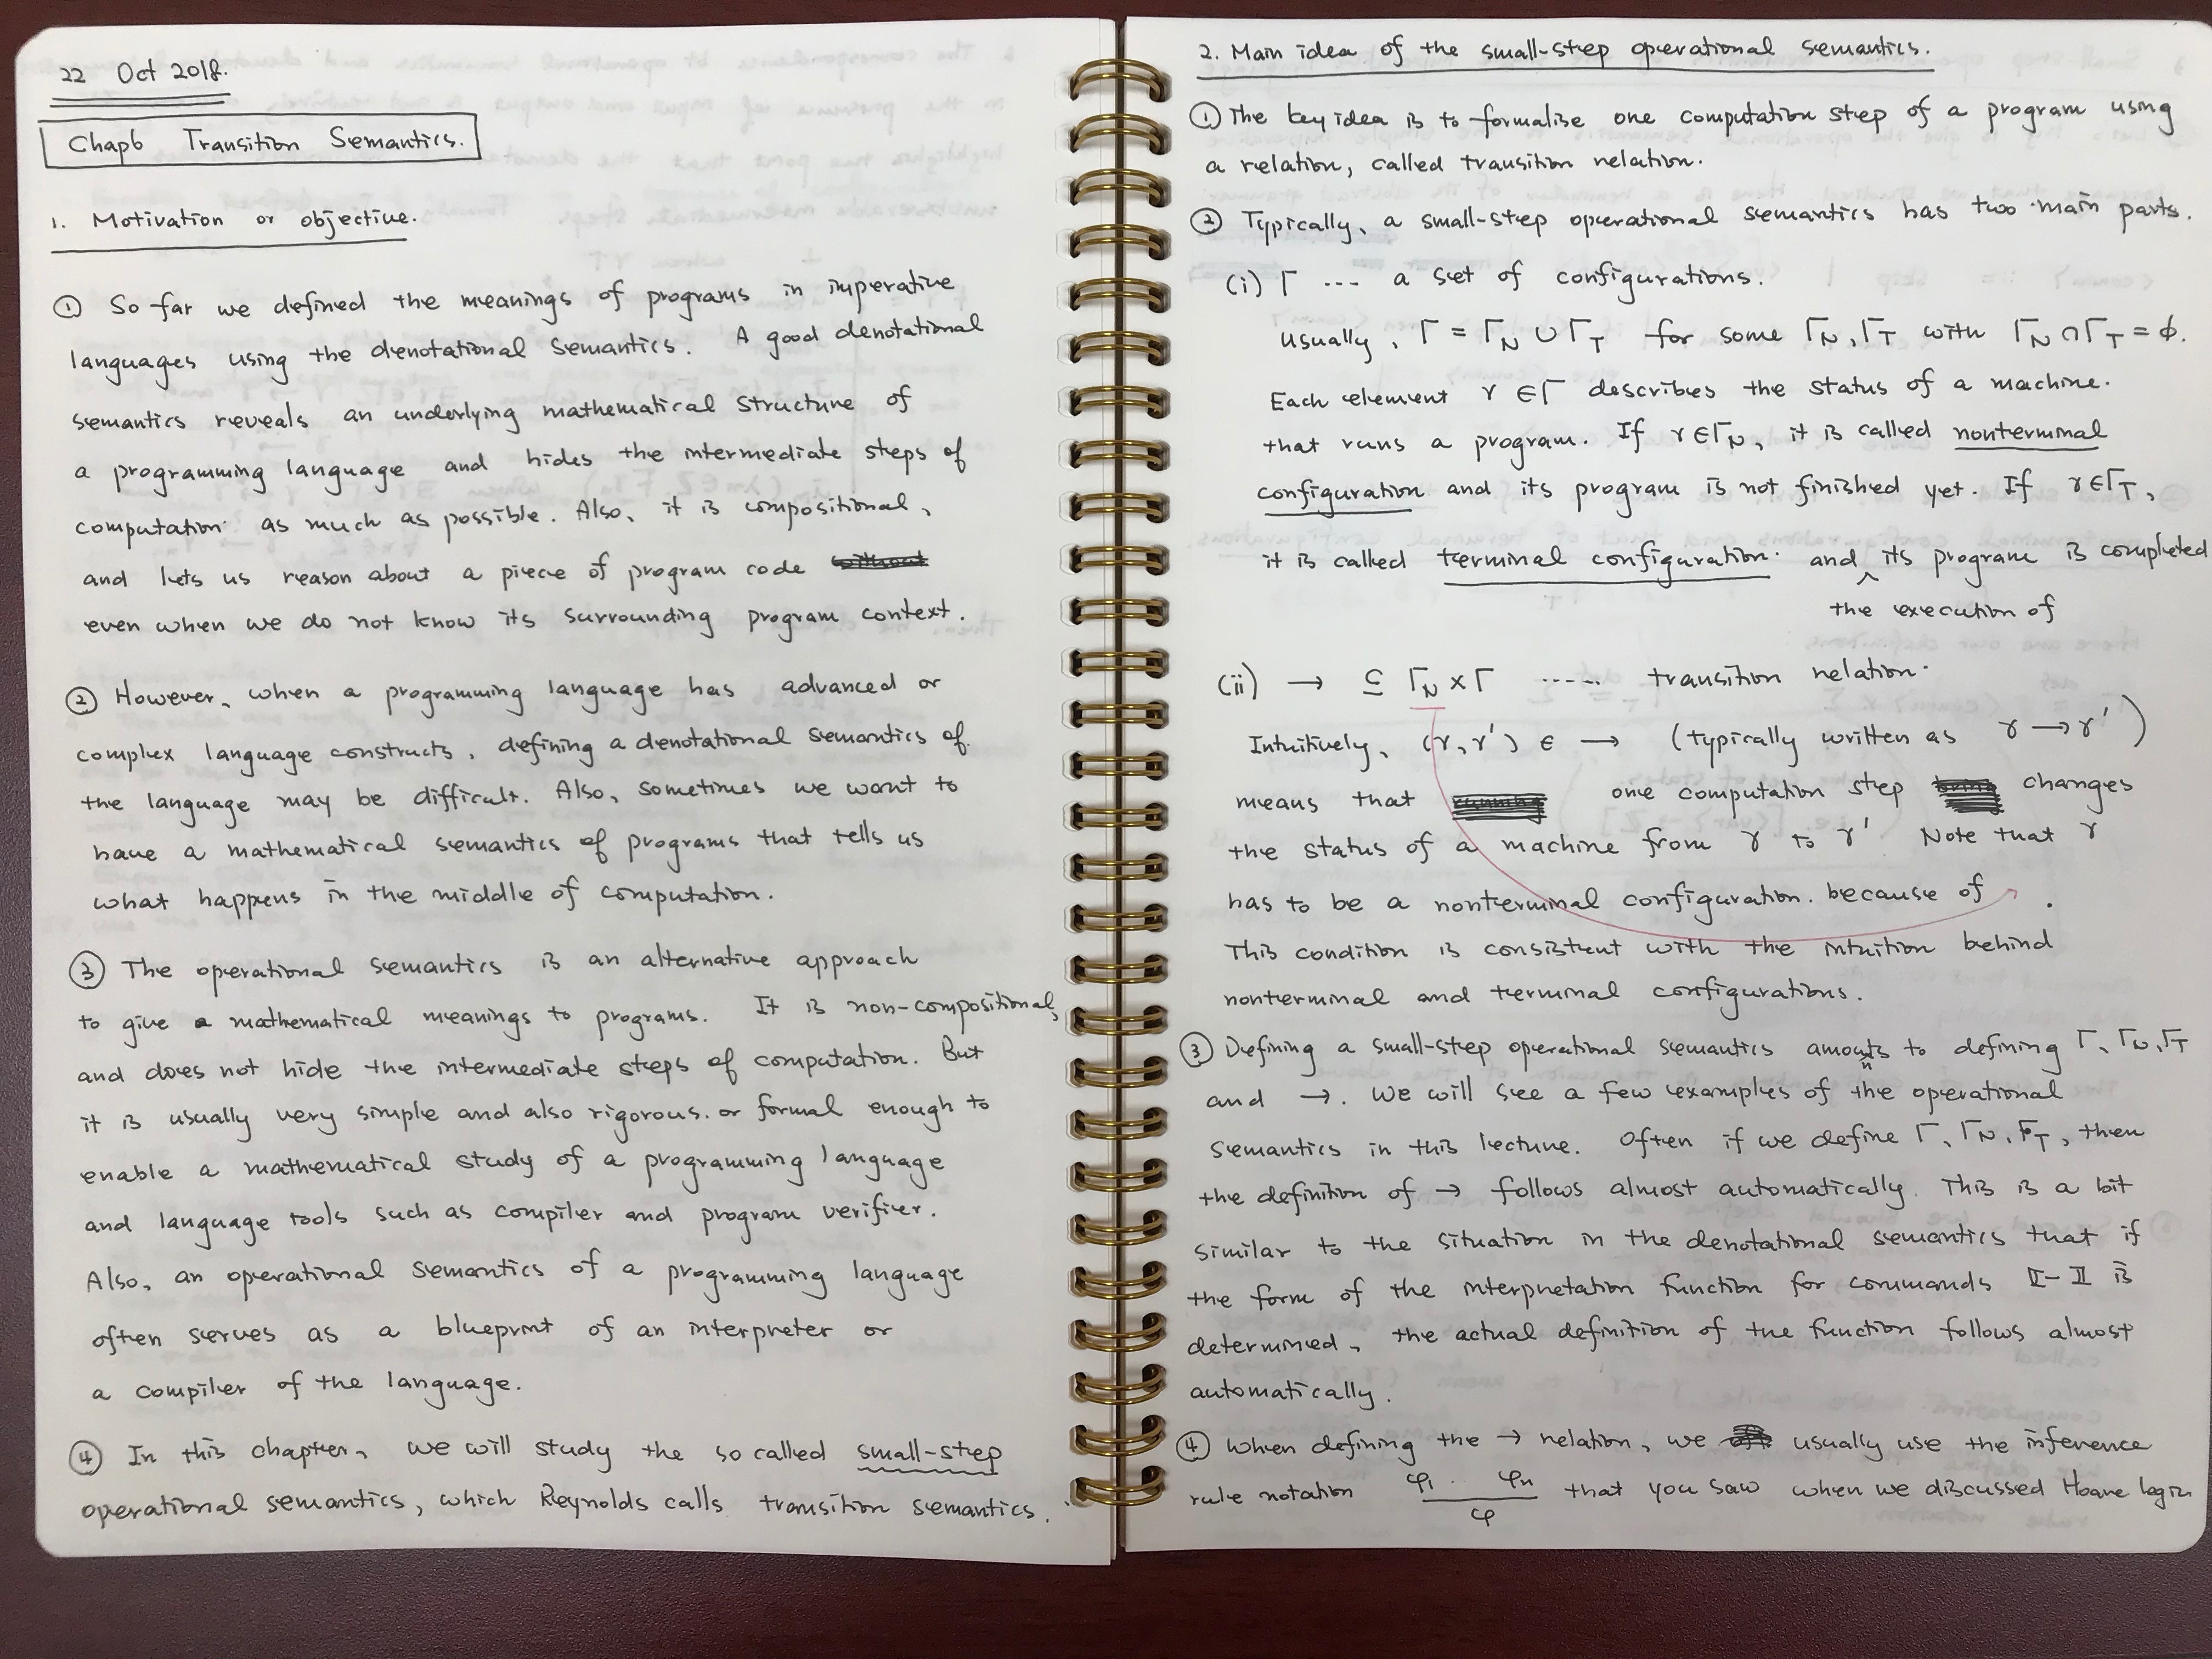 22 Oct 2018.
Chap6 Transition Semantics.
1. Motivation or objective.
① So far we defined the meanings of programs in imperative
languages using the denotational semantics. A good denotational
semantics reveals an underlying mathematical structure of
a programming language and hides the intermediate steps of
computation as much as possible. Also, it is compositional,
and lets us reason about a piece of program code without
even when we do not know its surrounding program context.
② However, when a programming language has advanced or
complex language constructs, defining a denotational semantics of
the language may be difficult. Also, sometimes we want to
have a mathematical semantics of programs that tells us
what happens in the middle of computation.
③ The operational semantics is an alternative approach
to give a mathematical meanings to programs. It is non-compositional,
and does not hide the intermediate steps of computation. But
it is usually very simple and also rigorous. or formal enough to
enable a mathematical study of a programming language
and language tools such as compiler and program verifier.
Also, an operational semantics of a programming language
often serves as a blueprint of an interpreter or
a compiler of the language.
④ In this chapter, we will study the so called small-step
operational semantics, which Reynolds calls transition semantics.
2. Main idea of the small-step operational semantics.
① The key idea is to formalise one computation step of a program using
a relation, called transition relation.
② Typically, a small-step operational semantics has two main parts.
(i) Γ ... a set of configurations.
usually, Γ = Γ_N ∪ Γ_T for some Γ_N, Γ_T with Γ_N ∩ Γ_T = ϕ.
Each element γ ∈ Γ describes the status of a machine.
that runs a program. If γ ∈ Γ_N, it is called nonterminal
configuration and its program is not finished yet. If γ ∈ Γ_T,
it is called terminal configuration. and ^ its program is completed
the execution of
(ii) → ⊆ Γ_N × Γ ..... transition relation.
Intuitively, (γ, γ') ∈ → (typically written as γ → γ')
means that running one computation step changes
the status of a machine from γ to γ'. Note that γ
has to be a nonterminal configuration. because of .
This condition is consistent with the intuition behind
nonterminal and terminal configurations.
③ Defining a small-step operational semantics amounts to defining Γ, Γ_N, Γ_T
and →. We will see a few examples of the operational
semantics in this lecture. Often if we define Γ, Γ_N, Γ_T, then
the definition of → follows almost automatically. This is a bit
similar to the situation in the denotational semantics that if
the form of the interpretation function for commands ⟦-⟧ is
determined, the actual definition of the function follows almost
automatically.
④ When defining the → relation, we usually use the inference
rule notation φ₁ .. φₙ / φ that you saw when we discussed Hoare logic